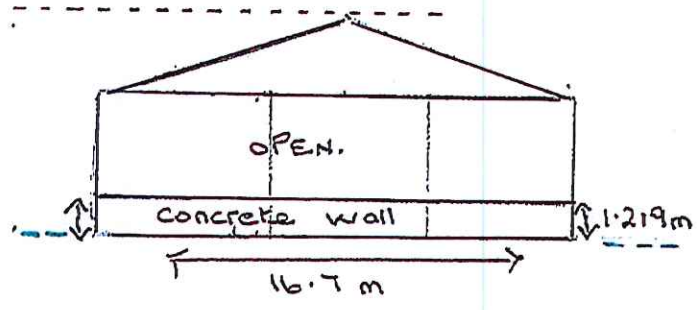 OPEN.
concrete wall
1.219m
16.7 m